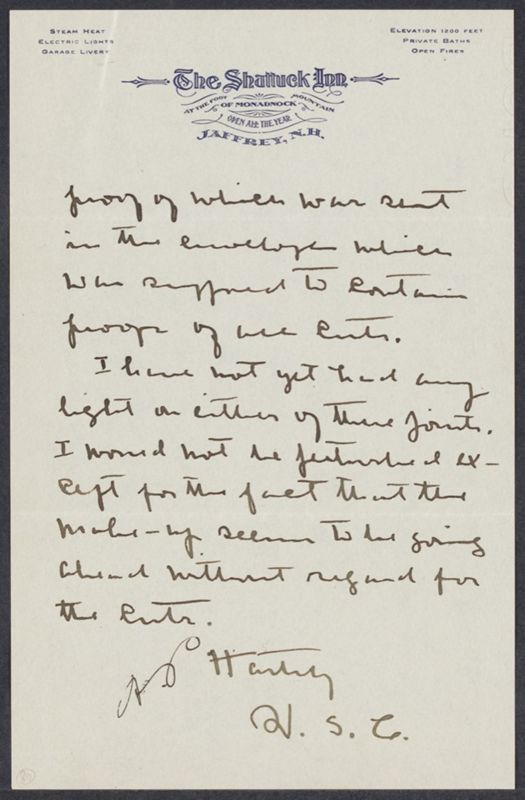 STEAM HEAT
ELECTRIC LIGHTS
GARAGE LIVERY
ELEVATION 1200 FEET
PRIVATE BATHS
OPEN FIRES
The Shattuck Inn
AT THE FOOT OF MONADNOCK MOUNTAIN
OPEN ALL THE YEAR
JAFFREY, N.H.
proof of which was sent
in the envelope which
was supposed to contain
proofs of all cuts.
I have not yet had any
light on either of these points.
I would not be disturbed ex-
cept for the fact that the
make-up seems to be going
ahead without regard for
the cuts.
Hastily
W. S. C.